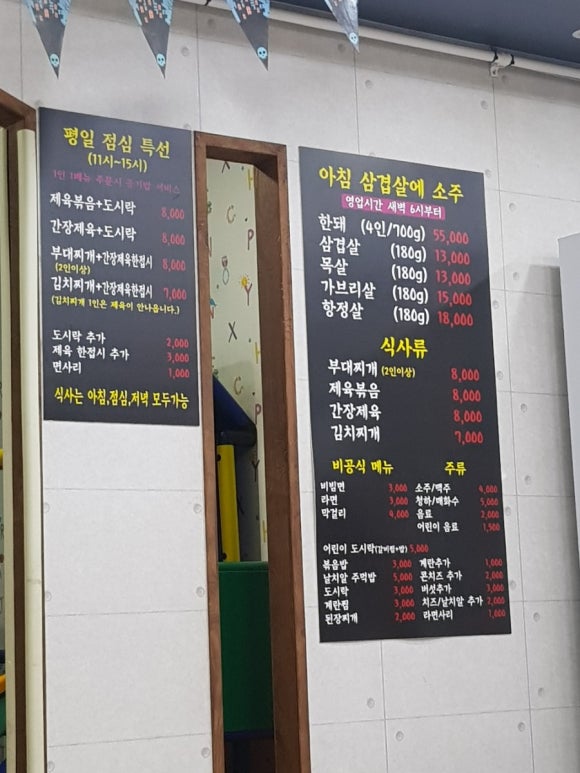 평일 점심 특선
(11시~15시)
1인 1메뉴 주문시 공기밥 서비스
제육볶음+도시락 8,000
간장제육+도시락 8,000
부대찌개+간장제육한접시 8,000
(2인이상)
김치찌개+간장제육한접시 7,000
(김치찌개 1인은 제육이 안나옵니다.)
도시락 추가 2,000
제육 한접시 추가 3,000
면사리 1,000
식사는 아침,점심,저녁 모두가능
아침 삼겹살에 소주
영업시간 새벽 6시부터
한돼 (4인/700g) 55,000
삼겹살 (180g) 13,000
목살 (180g) 13,000
가브리살 (180g) 15,000
항정살 (180g) 18,000
식사류
부대찌개 (2인이상) 8,000
제육볶음 8,000
간장제육 8,000
김치찌개 7,000
비공식 메뉴
비빔면 3,000
라면 3,000
막걸리 4,000
주류
소주/맥주 4,000
청하/매화수 5,000
음료 2,000
어린이 음료 1,500
어린이 도시락(갈비찜+밥) 5,000
볶음밥 3,000
날치알 주먹밥 5,000
도시락 3,000
계란찜 3,000
된장찌개 2,000
계란추가 1,000
콘치즈 추가 2,000
버섯추가 3,000
치즈/날치알 추가 2,000
라면사리 1,000